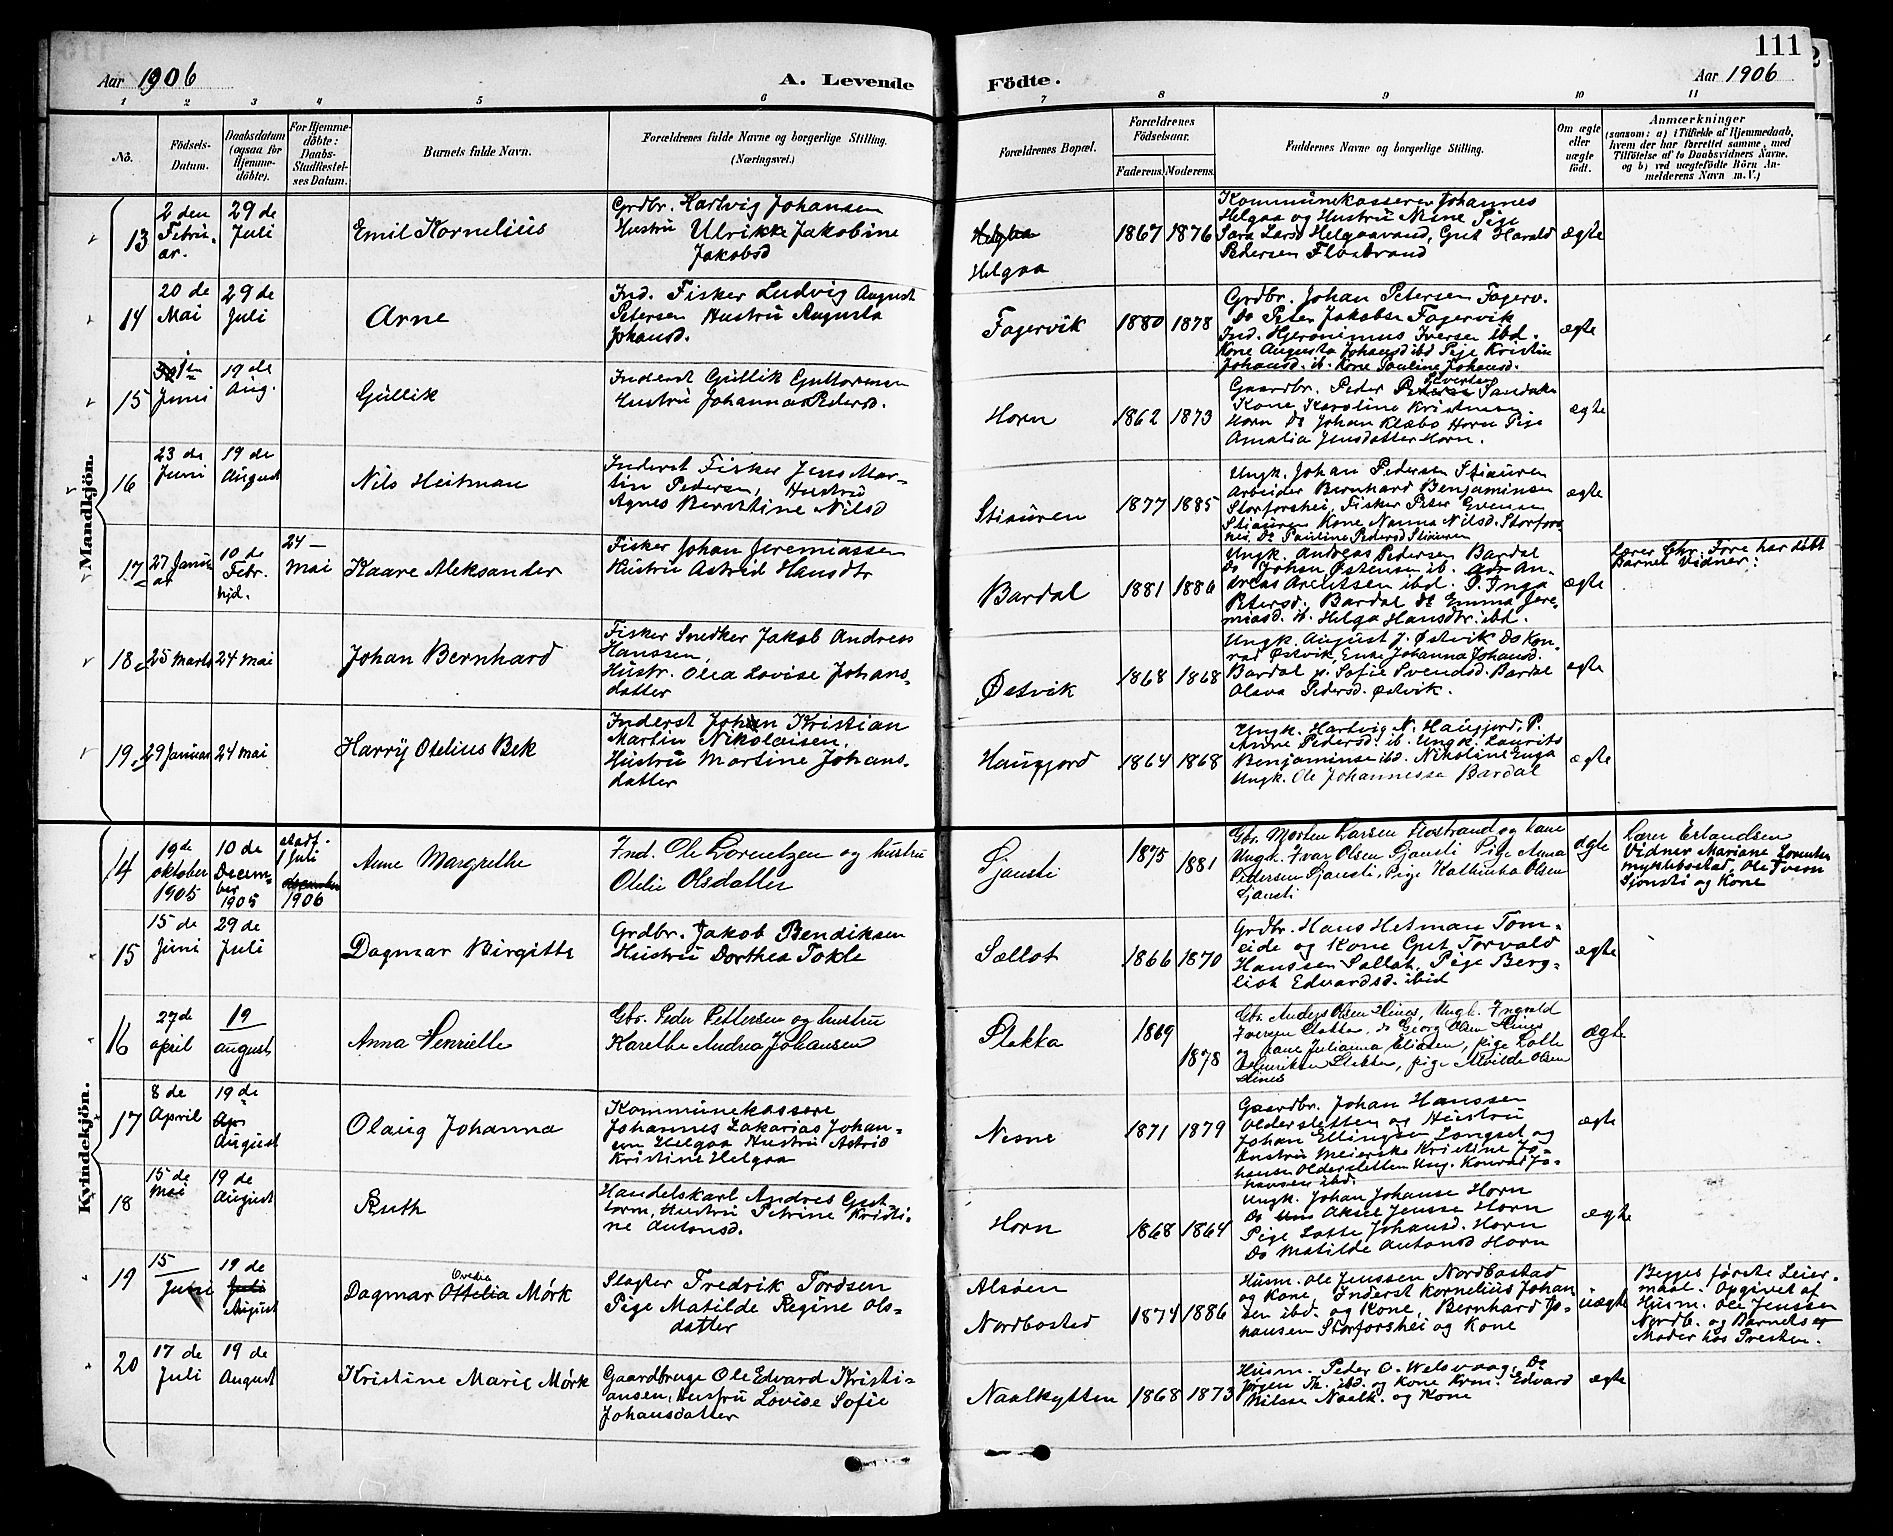 111
Aar 1906
A. Levende
Födte.
Aar 1906
1 2 3 4 5 6 7 8 9 10 11
No.
Födsels-
Datum.
Daabsdatum
(ogsaa for
Hjemme-
döbte).
For Hjemme-
döbte:
Daabs-
Stadfæstel-
ses Datum.
Barnets fulde Navn.
Forældrenes fulde Navne og borgerlige Stilling.
(Næringsvei.)
Forældrenes Bopæl.
Forældrenes
Födselsaar.
Faderens. Moderens.
Faddernes Navne og borgerlige Stilling.
Om ægte
eller
uægte
födt.
Anmærkninger
(saasom: a) i Tilfælde af Hjemmedaab,
hvem der har forrettet samme, med
Tilföielse af to Daabsvidners Navne,
og b) ved uægtefödte Börn An-
melderens Navn m. V.)
Mandkjön.
13
2 den
Febru-
ar.
29 de
Juli
Emil Kornelius
Grdbr. Hartvig Johansen
Hustru Ulrikke Jakobine
Jakobsd
Helgaa
Helgaa
1867 1876
Kommunekasserer Johannes
Helgaa og Hustru Nesne Pige
Sara Larsd Helgaavand, Gut Harald
Pedersen Flostrand
ægte
14
20 de
Mai
29 de
Juli
Arne
Ind. Fisker Ludvig August
Petersen Hustru Augusta
Johansd.
Fagervik
1880 1878
Grdbr. Johan Petersen Fagerv.
Do Peter Jakobse Fagervik
Ind. Hjeronimus Iversen ibd.
Kone Augusta Johansd ibd Pige Kristin
Johansd. ib. Kone Pauline Johansd.
ægte
15
1
Juni
19 de
Aug.
Gullik
Inderst Gullik Guttormsen
Hustru Johanna Pedersd.
Horn
1862 1873
Gaardbr. Peder Sivertsen Sandaker
Kone Karoline Kristensen
Horn Do Johan Klæbo Horn Pige
Amalia Jensdatter Horn.
ægte
16
23 de
Juni
19 de
August
Nils Heitman
Inderst Fisker Jens Mar-
tin Pedersen, Hustru
Agnes Berntine Nilsd
Stiauren
1877 1885
Ungk. Johan Pedersen Stiauren
Arbeider Bernhard Benjaminsen
Storforshei, Fisker Peter Evensen
Stiauren Kone Nanna Nilsd. Storfors-
hei, Do Pauline Pedersd Stiauren
ægte
17
27 Janu-
ar
10 de
Febr.
hjd.
24 —
Mai
Kaare Aleksander
Fisker Johan Jeremiassen
Hustru Astrid Hansdtr
Bardal
1881 1886
Ungk. Andreas Pedersen Bardal
Do Johan Østensen ib. An-
dreas Arentsen ibd. P. Inga
Petersd. Bardal do Emma Jere-
miasd. ib. Helga Hansdtr. ibd.
ægte
Lærer Chr. Fore har døbt
Barnet Vidner:
18
25 Marts
24 Mai
Johan Bernhard
Fisker Snedker Jakob Andreas
Hanssen
Hustr. Olea Lovise Johans-
datter
Østvik
1868 1868
Ungk. August J. Østvik Do Kon-
rad Østvik, Enke Johanna Johansd.
Bardal p. Sofie Svendsd. Bardal
Olava Pedersd. Østvik.
ægte
19
29 Januar
24 Mai
Harry Otelius Bek
Inderst Johan Kristian
Martin Nikolaisen.
Hustru Martine Johans-
datter
Haugjord
1864 1868
Ungk. Hartvig N. Haugjord, P.
Anne Pedersd. ib. Ungk. Laurits
Benjaminse ibd. Nikoline Enga
Ungk. Ole Johannesse Bardal
ægte
Kvindekjön.
14
19de
oktober
1905
10 de
Decem-
ber
1905
stadf.
1 Juli
december
1906
Anne Margrethe
Ind. Ole Lorentzen og hustru
Otelie Olsdatter
Sjonsti
1875 1881
Gbr. Morten Larsen Flostrand og kone
Ungk. Ivar Olsen Sjonsti Pige Anna
Pedersen Sjonsti, Pige Kathinka Olsen
Sjonsti
ægte
Lærer Erlandsen
Vidner Mariane Lorents
Myklebostad, Ole Iverson
Sjonsti og Kone
15
15 de
Juni
29 de
Juli
Dagmar Birgitte
Grdbr. Jakob Bendiksen
Hustru Dorthea Tokle
Sællot
1866 1870
Grdbr. Hans Hetman Tom-
eide og Kone Gut Torvald
Hanssen Sallot, Pige Berg-
liot Edvardsd. ibid
ægte
16
27de
april
19
august
Anna Henriette
Gbr. Peder Pettersen og hustru
Karethe Andrea Johansen
Slokka
1869 1878
Gbr. Anders Olsen Hines, Ungk. Ingvald
Iversen Slokka, do Georg Olsen Hines
og kone Julianna Eliasen, pige Lotte
Henriksen Slokka, pige Alvilde Olsen
Hines
ægte
17
8 de
April
19 de
Apr
August
Olaug Johanna
Kommunekassere
Johannes Zakarias Johan-
sen Helgaa Hustru Astrid
Kristine Helgaa
Nesne
1871 1879
Gaardbr. Johan Hanssen
Oldersletten og Hustru
Johan Ellingsen Longset og
Hustru Meierske Kristine Jo-
hansen Oldersletten Ung. Konrad Jo-
hansen ibd.
ægte
18
15 de
Mai
19 de
August
Ruth
Handelskarl Andres Gutt
orm, Hustru Petrine Kristi-
ne Antonsd.
Horn
1868 1864
Ungk. Johan Johanse Horn
Do Aksel Jensse Horn
Pige Lotte Johansd. Horn
Do Matilde Antonsd Horn
ægte
19
15
Juni
19 de
Juli
August
Dagmar Ottelia Mørk
Ovedia
Slagter Fredrik Tordsen
Pige Matilde Regine Ols-
datter
Alsøen
Nordbostad
1874 1886
Husm. Ole Jenssen Nordbostad
og Kone, Inderst Kornelius Johan
sen ibd. og Kone, Bernhard Jo-
hansen Storforshei og Kone
uægte
Begges første Leier-
maal. Opgivet af
Husm. Ole Jenssen
Nordb. og Barnets
Moder hos Presten.
20
17 de
Juli
19 de
August
Kristine Marie Mørk
Gaardbruge Ole Edvard Kristi-
ansen, Hustru Lovise Sofie
Johansdatter
Naalkytten
1868 1873
Husm. Peder O. Welsvaag, Do
Jørgen Th. ibd. og Kone Krm. Edvard
Nilsse Naalk. og Kone
ægte